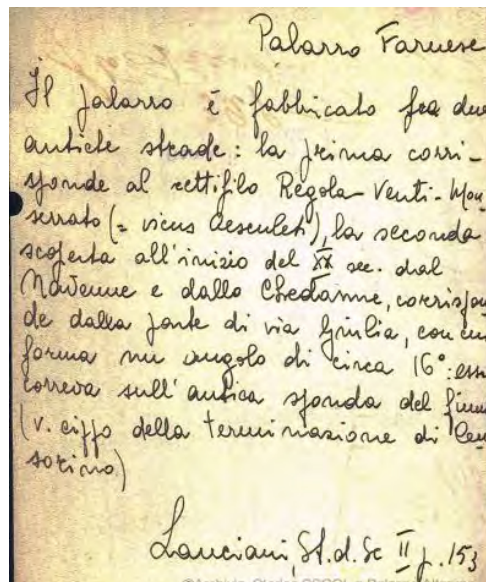 Palazzo Farnese
Il palazzo è fabbricato fra due
antiche strade: la prima corri-
sponde al rettifilo Regola-Venti-Mon
serrato (= vicus Aesculeti), la seconda
scoperta all'inizio del XX sec. dal
Navenne e dallo Chedanne, corrispon
de dalla parte di via Giulia, con cui
forma un angolo di circa 16°: essa
correva sull'antica sponda del fium
(v. cippo della terminazione di Cen
sorino)
Lanciani, St. d. Sc II p. 153